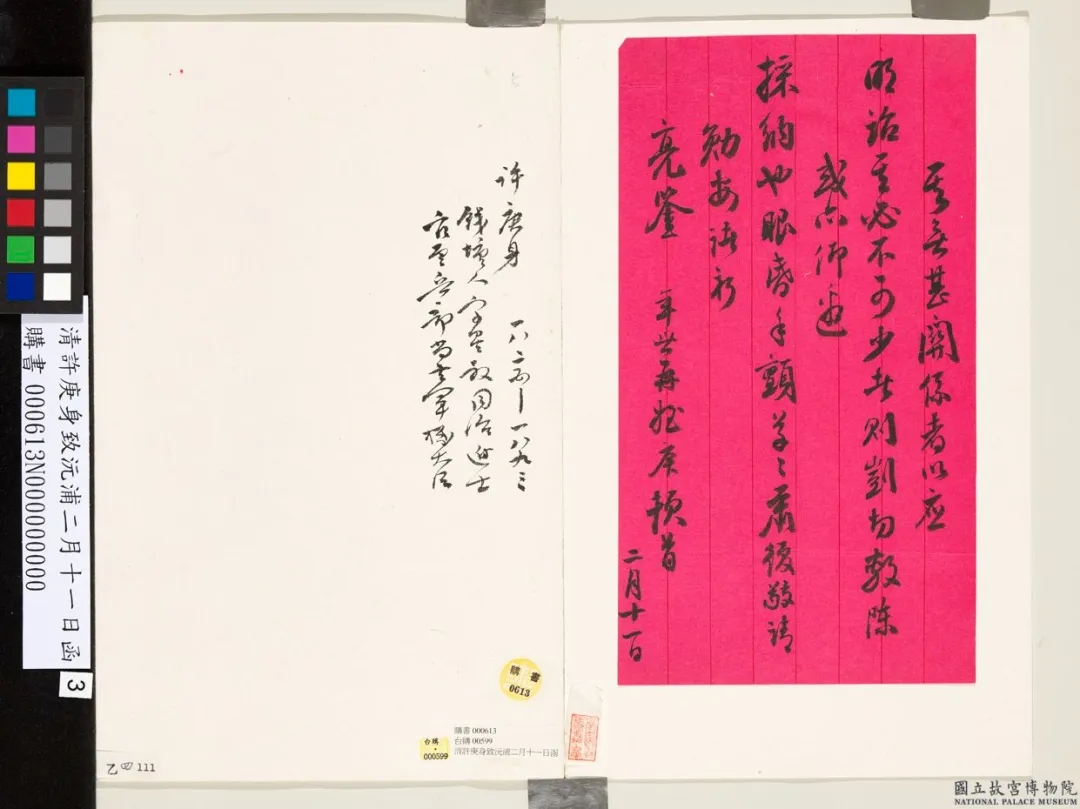 其無甚關係者以應
明詔其必不可少者則剴切敷陳
或亦仰邀
採納也眼昏手顫草草肅復敬請
勛安諸祈
亮鑒
年世再姪庚頓首
二月十一日
許庚身
一八二五－一八九三
錢塘人字星叔同治進士
官至兵部尚書軍機大臣
購書
0613
購書 000613
台購 00599
清許庚身致沅浦二月十一日函
台購
000599
乙四 111
清許庚身致沅浦二月十一日函
購書 000613N000000000
3
國立故宮博物院
NATIONAL PALACE MUSEUM